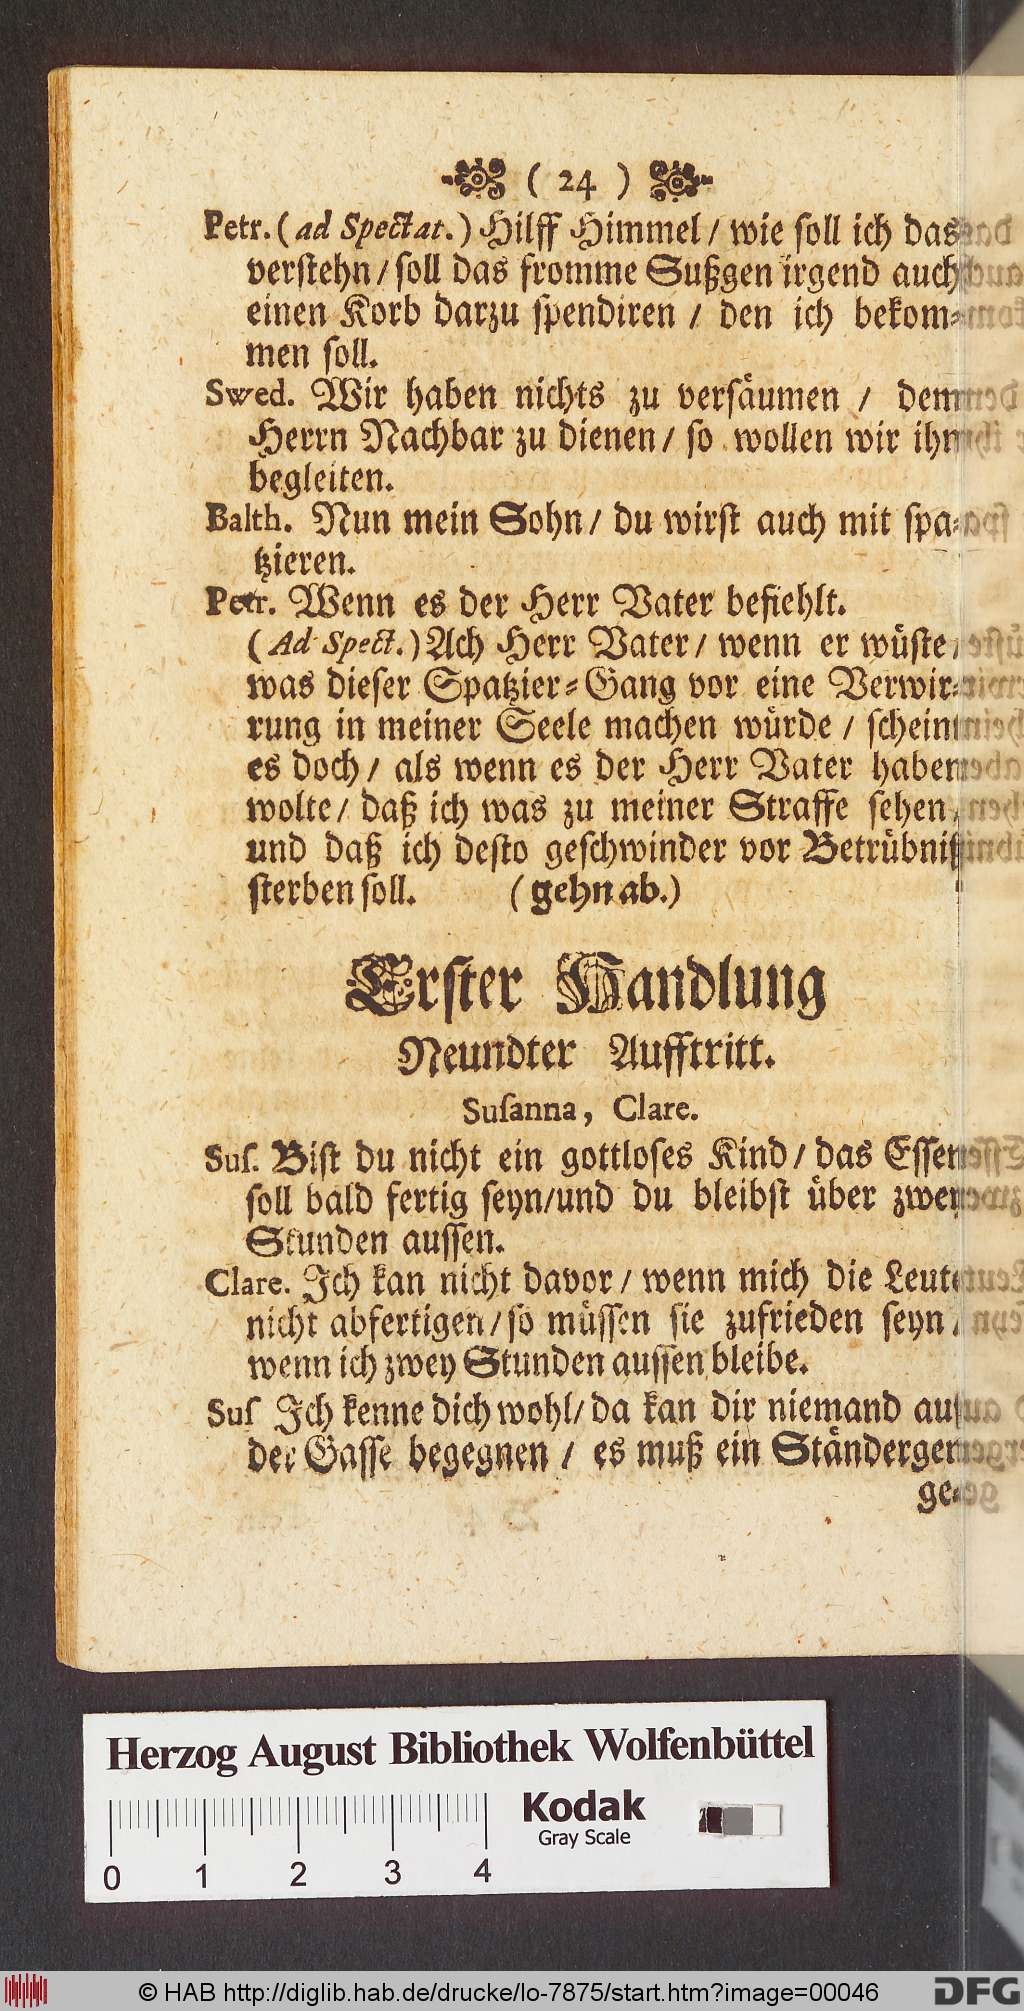 ( 24 )
Petr. (ad Spectat.) Hilff Himmel / wie soll ich das
verstehn / soll das fromme Sußgen irgend auch
einen Korb darzu spendiren / den ich bekom-
men soll.
Swed. Wir haben nichts zu versäumen / dem
Herrn Nachbar zu dienen / so wollen wir ihn
begleiten.
Balth. Nun mein Sohn / du wirst auch mit spa-
tzieren.
Petr. Wenn es der Herr Vater befiehlt.
(Ad Spect.) Ach Herr Vater / wenn er wüste /
was dieser Spatzier-Gang vor eine Verwir-
rung in meiner Seele machen würde / scheint
es doch / als wenn es der Herr Vater haben
wolte / daß ich was zu meiner Straffe sehen /
und daß ich desto geschwinder vor Betrübniß
sterben soll. (gehn ab.)
Erster Handlung
Neundter Aufftritt.
Susanna, Clare.
Sus. Bist du nicht ein gottloses Kind / das Essen
soll bald fertig seyn / und du bleibst über zwey
Stunden aussen.
Clare. Ich kan nicht davor / wenn mich die Leute
nicht abfertigen / so müssen sie zufrieden seyn /
wenn ich zwey Stunden aussen bleibe.
Sus Ich kenne dich wohl / da kan dir niemand auf
der Gasse begegnen / es muß ein Ständergen
ge-
Herzog August Bibliothek Wolfenbüttel
Kodak
Gray Scale
0 1 2 3 4
© HAB http://diglib.hab.de/drucke/lo-7875/start.htm?image=00046
DFG